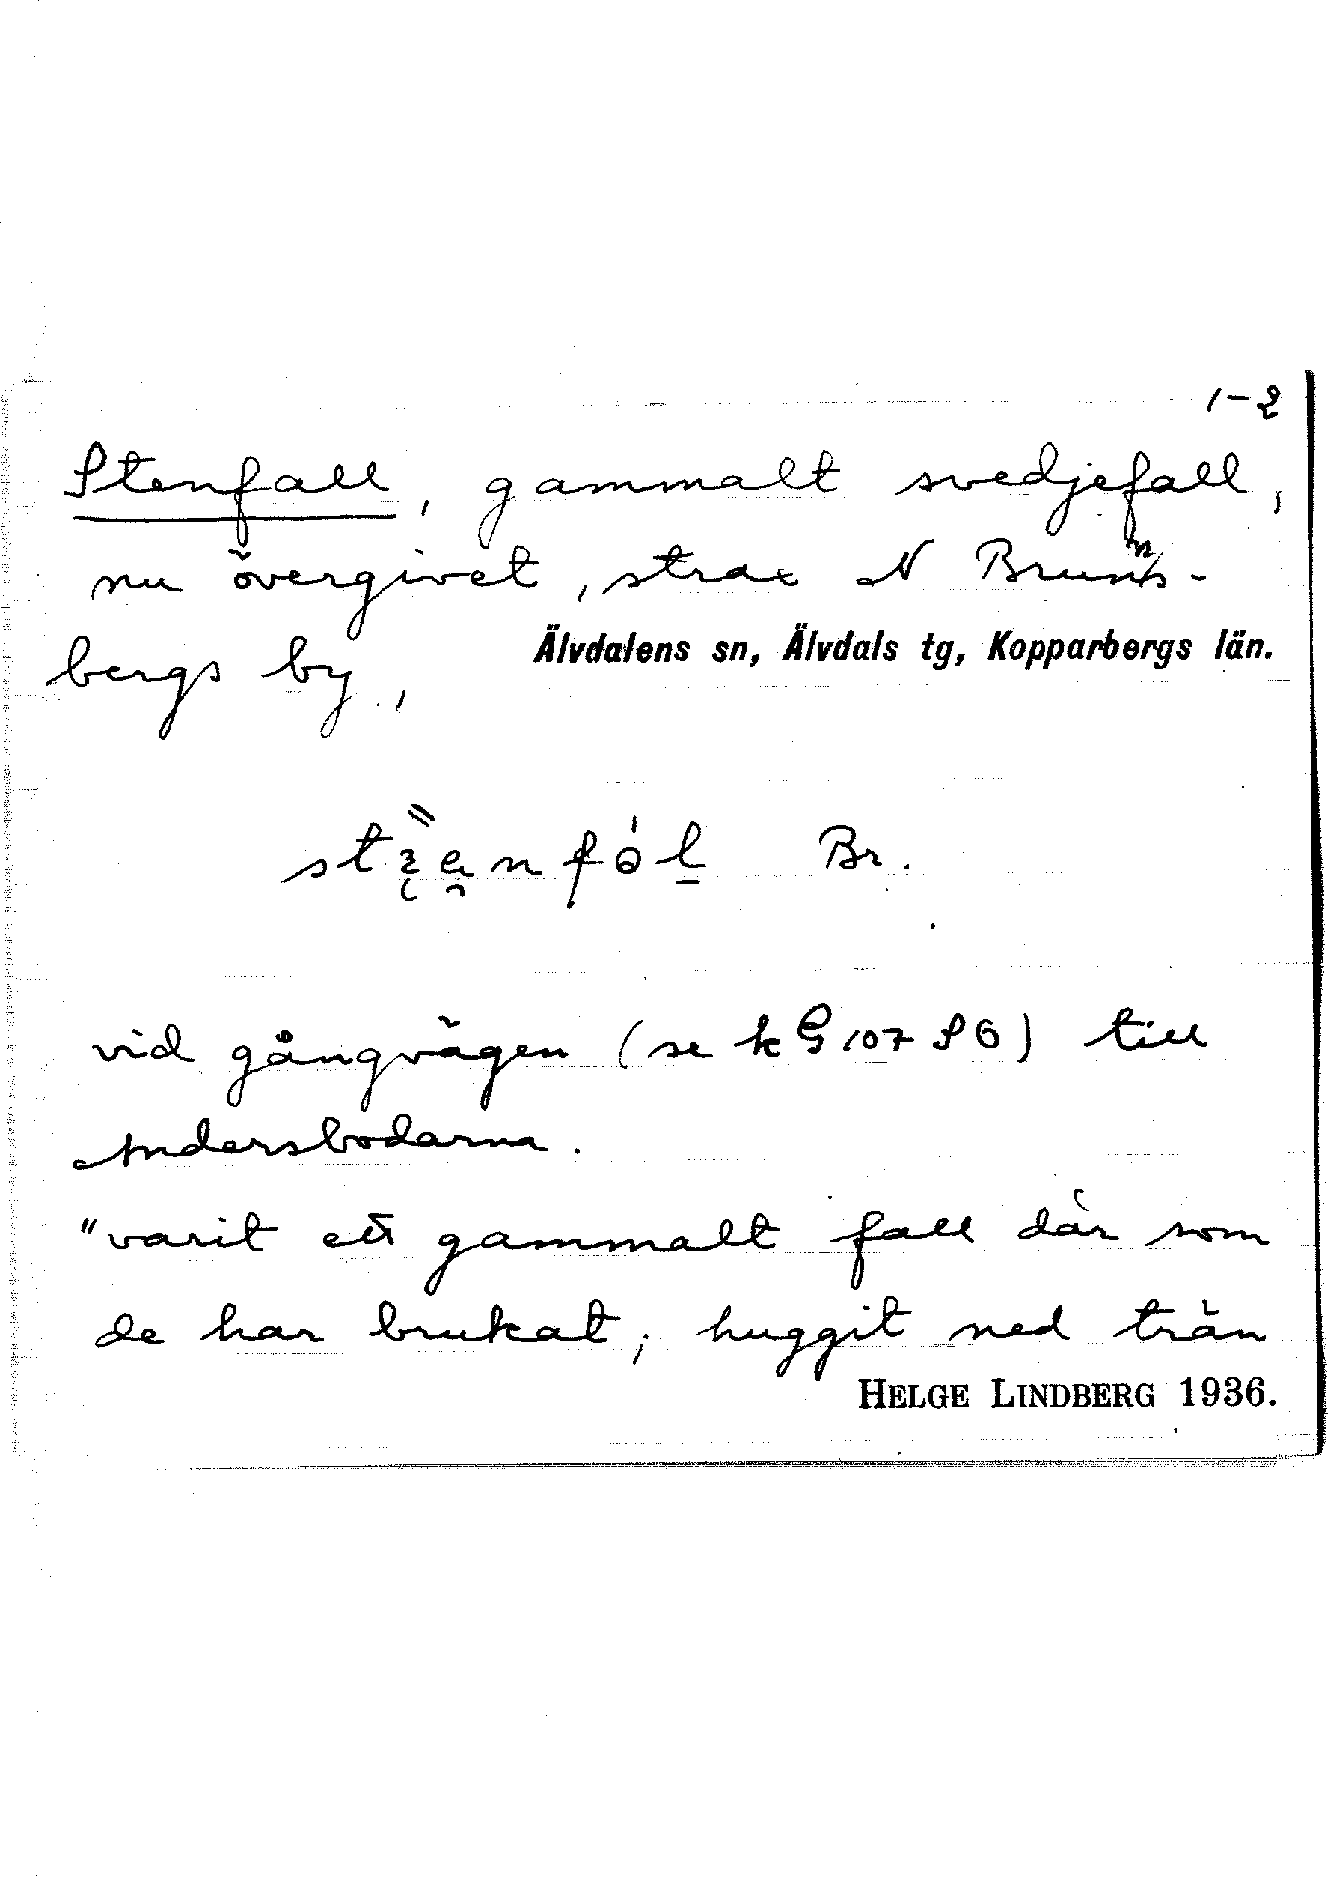 1-2
Stenfall, gammalt svedjefall,
nu övergivet, strax N Brunns-
bergs by,
Älvdalens sn, Älvdals tg, Kopparbergs län.
Br.
vid gångvägen (se k G 107 S 6) till
Andersbodarna.
"varit ett gammalt fall där som
de har brukat; huggit ned trän
HELGE LINDBERG 1936.